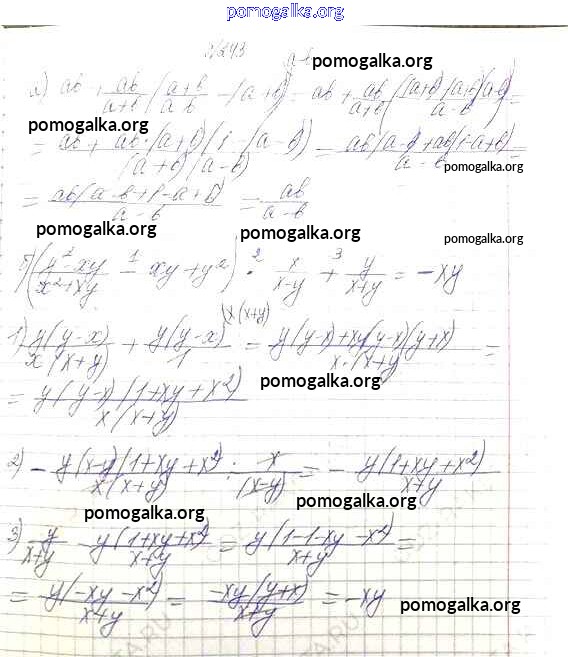 pomogalka.org
№243
pomogalka.org
а) ab + ab/(a+b) ((a+b)/(a-b) - (a+b)) = ab + ab/(a+b) (((a+b) - (a+b)(a-b))/(a-b)) =
pomogalka.org
= ab + ab·(a+b)(1-(a-b))/((a+b)(a-b)) = (ab(a-b)+ab(1-a+b))/(a-b) =
pomogalka.org
= ab(a-b+1-a+b)/(a-b) = ab/(a-b)
pomogalka.org
pomogalka.org
б) ((y²-xy)/(x²+xy) - xy + y²) · x/(x-y) + y/(x+y) = -xy
1) y(y-x)/(x(x+y)) + y(y-x)/1 = (y(y-x)+xy(y-x)(y+x))/(x·(x+y)) =
= y(y-x)(1+xy+x²)/(x(x+y))
pomogalka.org
2) - y(x-y)(1+xy+x²)/(x(x+y)) : x/(x-y) = - y(1+xy+x²)/(x+y)
pomogalka.org
pomogalka.org
3) y/(x+y) - y(1+xy+x²)/(x+y) = y(1-1-xy-x²)/(x+y) =
= y(-xy-x²)/(x+y) = -xy(y+x)/(x+y) = -xy
pomogalka.org